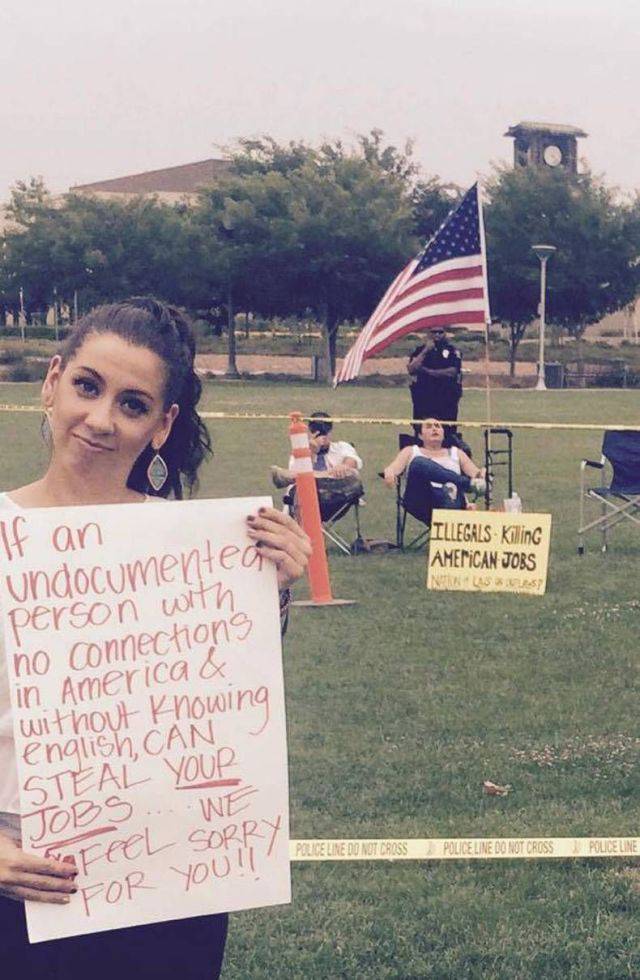 If an
undocumented
person with
no connections
in America &
without knowing
english, CAN
STEAL YOUR
JOBS .... WE
FEEL SORRY
FOR YOU!!
ILLEGALS KilliNG
AMERICAN JOBS
NATION of LAWS OR OUTLAWS?
POLICE LINE DO NOT CROSS POLICE LINE DO NOT CROSS POLICE LINE